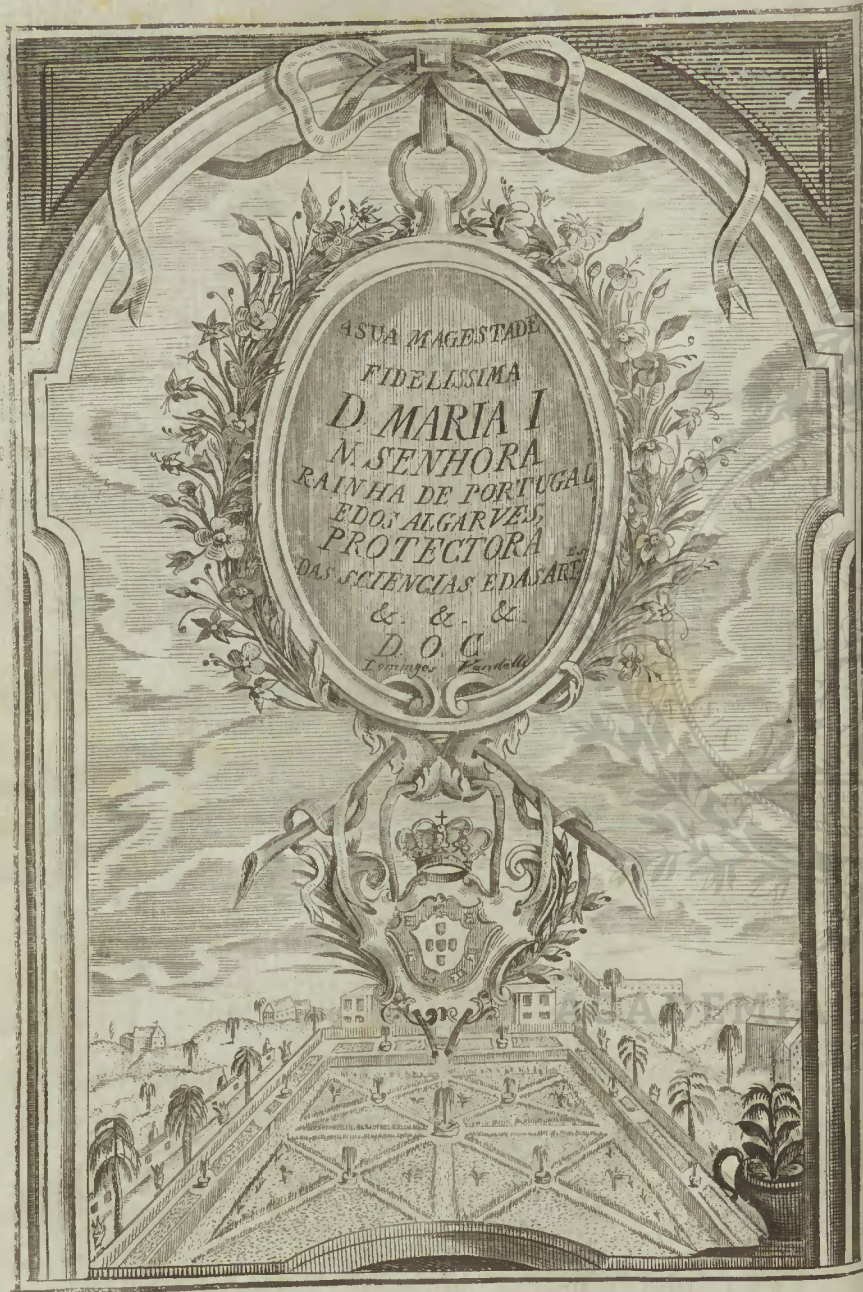 A SUA MAGESTADE
FIDELISSIMA
D. MARIA I
N. SENHORA
RAINHA DE PORTUGAL
EDOS ALGARVES,
PROTECTORA
DAS SCIENCIAS EDAS ARTES
&. &. &.
D. O. C
Domingos Vandelli
ACADEMIA